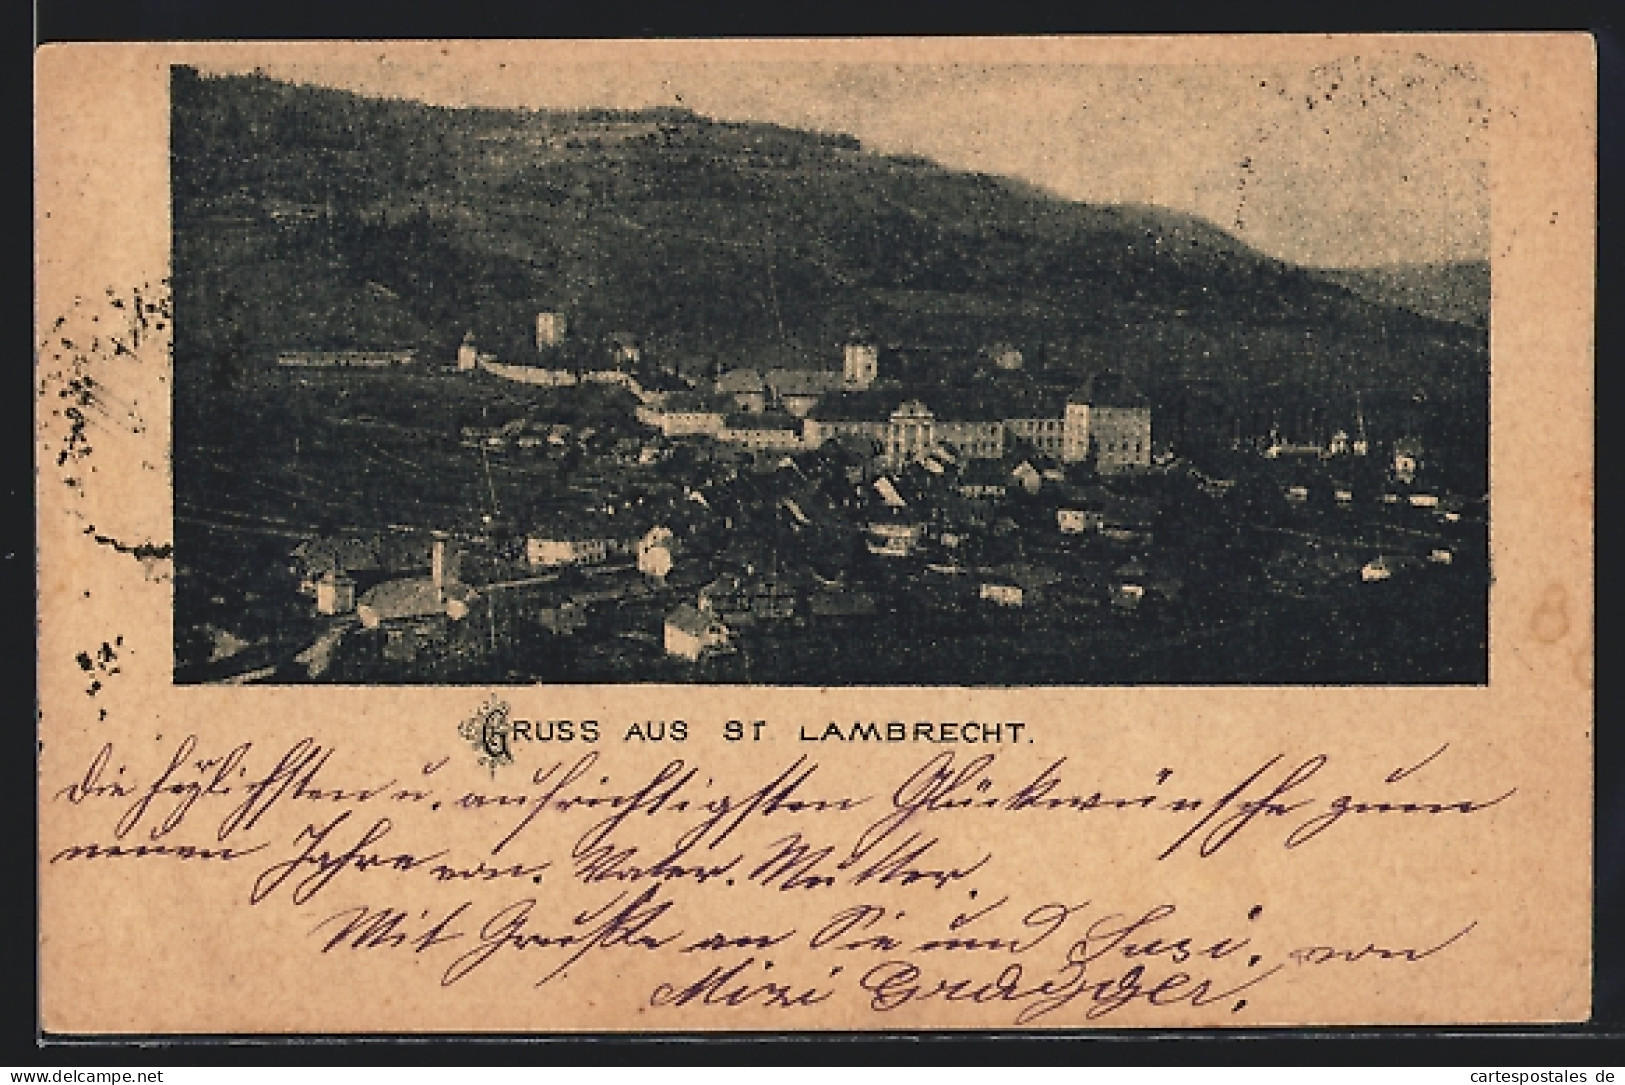 GRUSS AUS ST LAMBRECHT.
Die herzlichsten u. aufrichtigsten Glückwünsche zum
neuen Jahre von. Vater. Mutter.
Mit Grüße an Sie und Susi. von
Mizi Gragger.
www.delcampe.net
cartespostales de